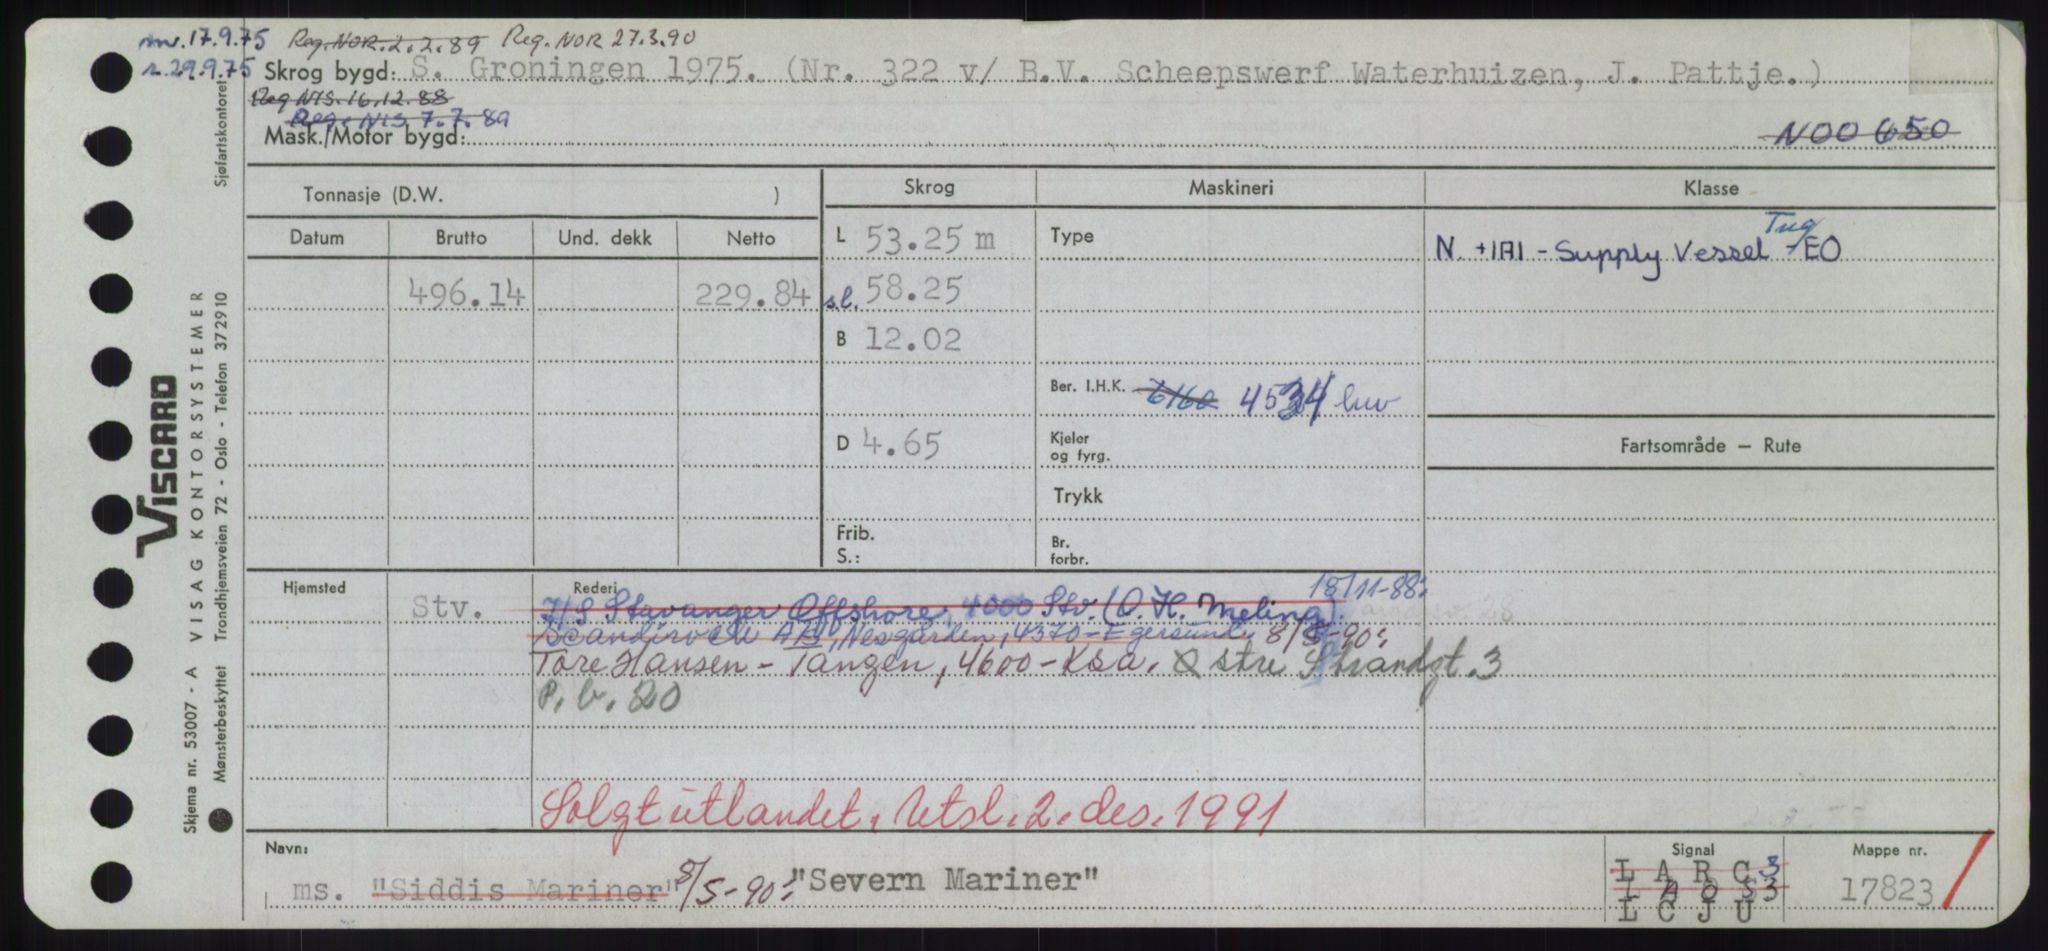 mv. 17.9.75 Reg. NOR. 2.2.89 Reg. NOR 27.3.90
r. 29.9.75 Skrog bygd: S. Groningen 1975. (Nr. 322 v/ B.V. Scheepswerf Waterhuizen, J. Pattje.)
Reg NIS. 16.12.88
Reg. NIS 7.7.89
Mask./Motor bygd: N00 650
Tonnasje (D.W. ) Skrog Maskineri Klasse
Datum Brutto Und. dekk Netto L 53.25 m Type N. +1A1 - Supply Vessel Tug - EO
496.14 229.84 s.l. 58.25
B 12.02
Ber. I.H.K. 6160 4534 hw
D 4.65 Kjeler og fyrg. Fartsområde — Rute
Trykk
Frib. S.: Br. forbr.
Hjemsted Stv. Rederi 18/11-88:
I/S Stavanger Offshore, 4000 Stv. (O. H. Meling)
AB, Nesgården, 4370-Egersund. 8/5-90:
Tore Hansen - Tangen, 4600 - Ksa. Østre Strandgt. 3
P.b. 20
Solgt utlandet. Utsl. 2. des. 1991
Navn: Signal Mappe nr.
ms. "Siddis Mariner" 8/5-90: "Severn Mariner" L A R C 3 17823
L A O S 3
L C J U
Skjema nr. 53007 - A VISAG KONTORSYSTEMER Sjøfartskontoret
Mønsterbeskyttet Trondhjemsveien 72 - Oslo - Telefon 372910
VISCARD